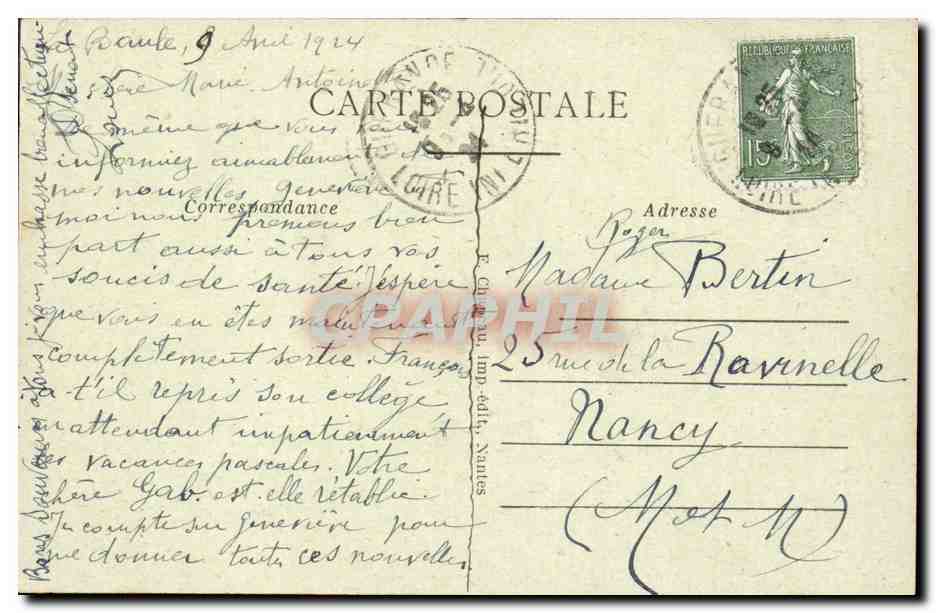 La Baule, 9 Avril 1924
chère Marie Antoinette
CARTE POSTALE
De même que vous
informiez aimablement de
mes nouvelles Geneviève
Correspondance
moi nous prenons bien
part aussi à tous vos
soucis de santé. J'espère
que vous en êtes maintenant
complètement sortie. François
a-t'il repris son collège
en attendant impatiemment
les vacances pascales. Votre
chère Gab. est-elle rétablie.
Je compte sur Geneviève pour
me donner toutes ces nouvelles.
Bons souvenirs à tous je vous embrasse bien affectueu-
sement
E. Chapeau, imp.-édit., Nantes
REPUBLIQUE FRANÇAISE
15
POSTES
GUERANDE
LOIRE INF
Adresse
Roger
Madame Bertin
25 rue de la Ravinelle
Nancy
(M et M)
CPAPHIL